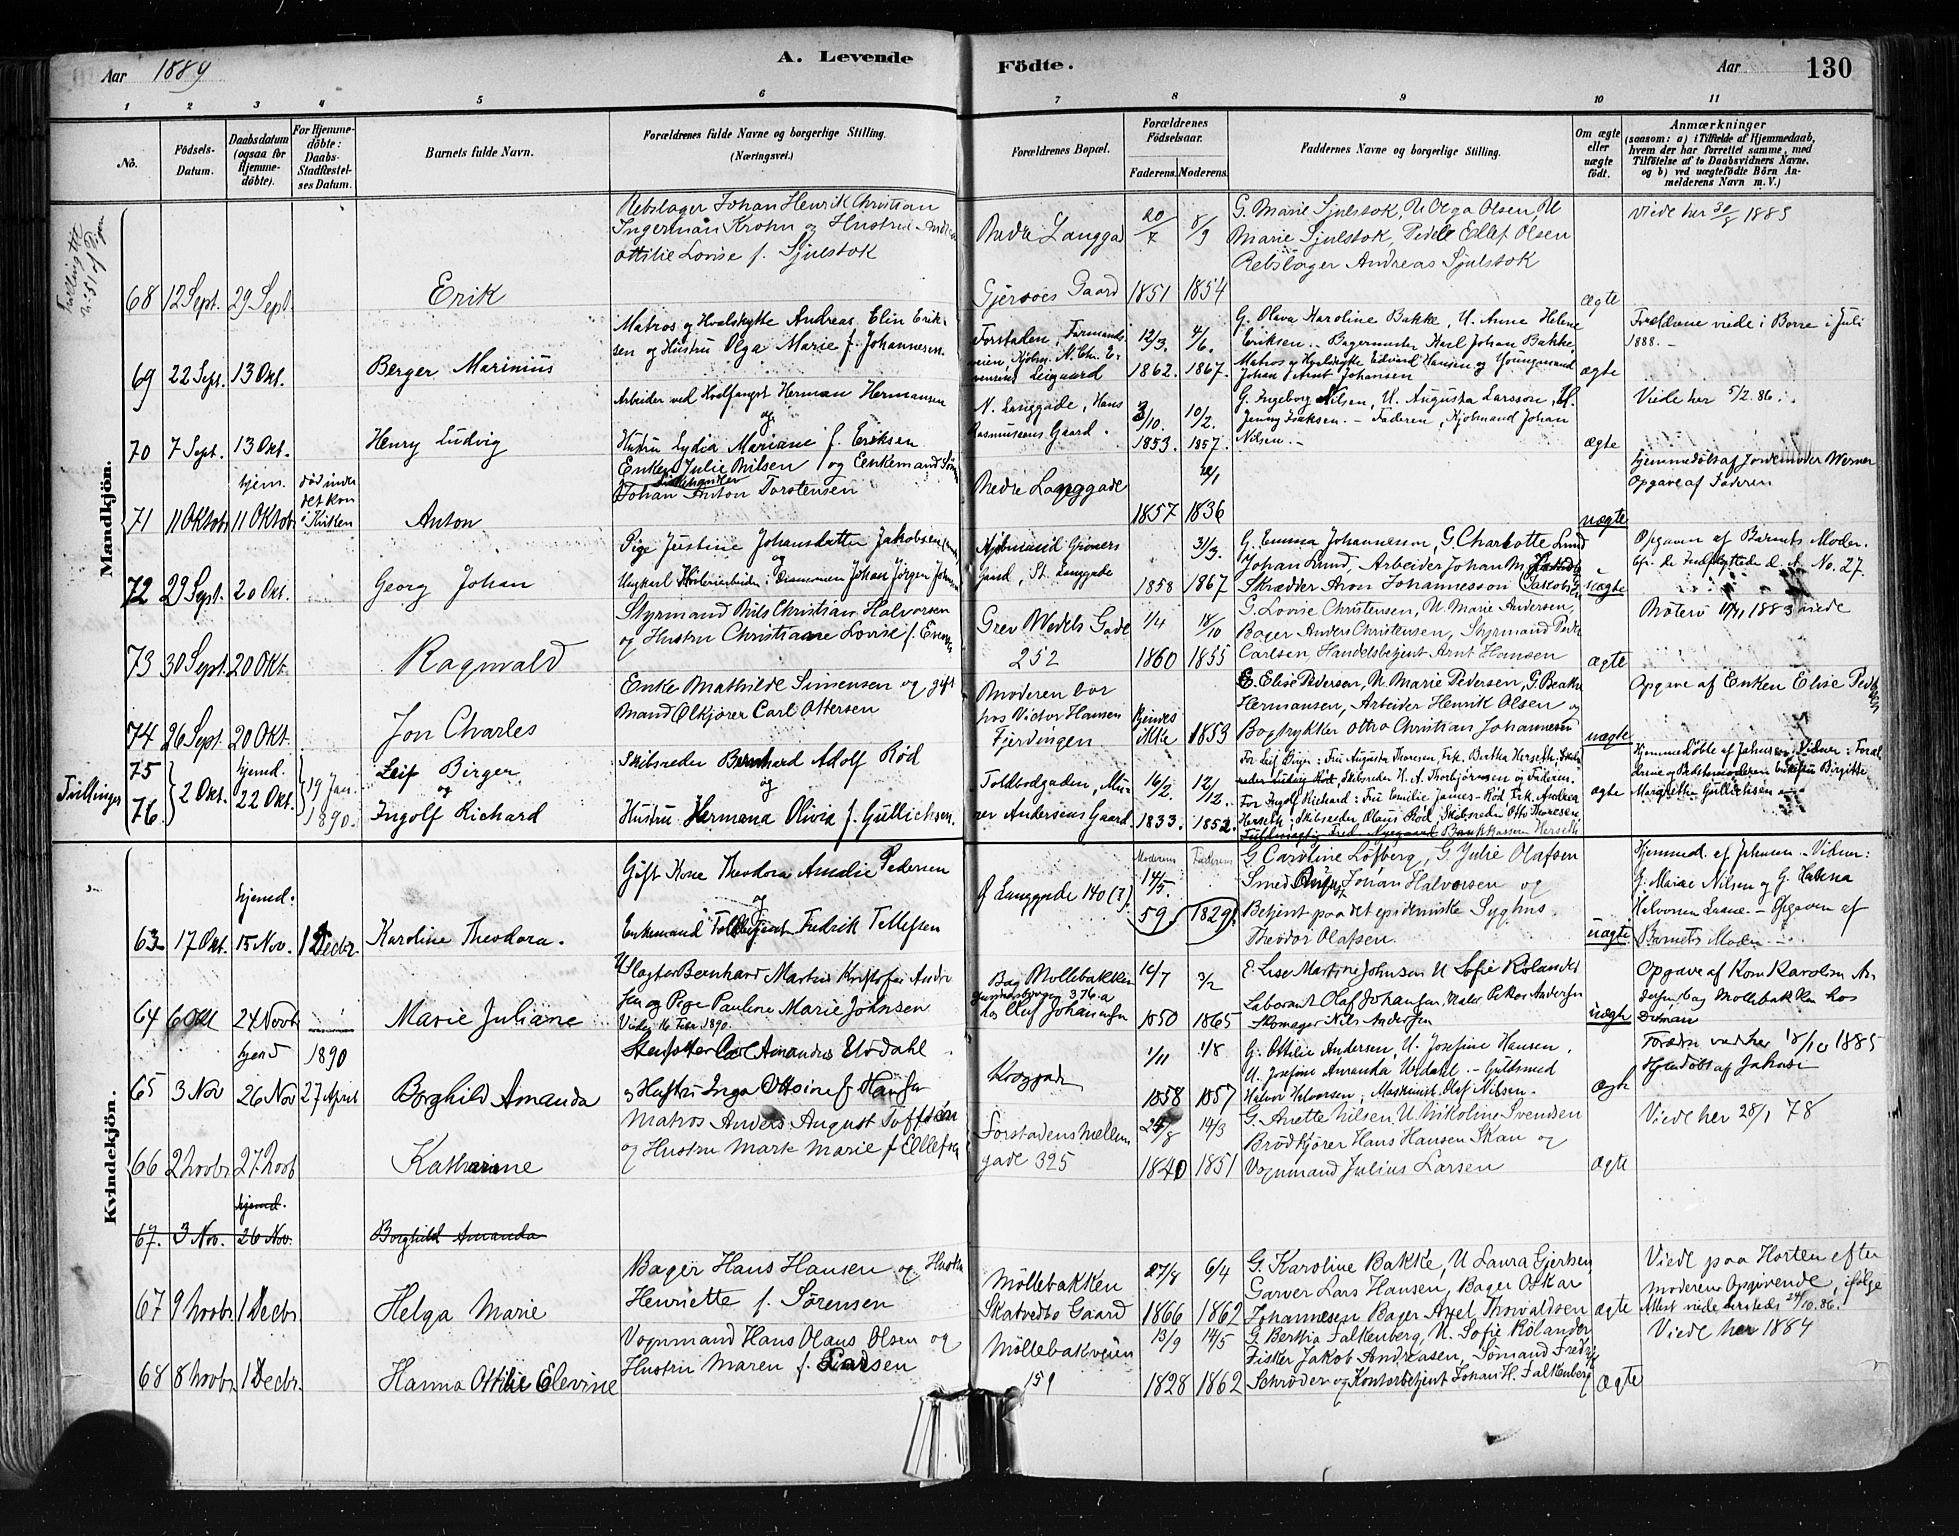 Aar 1889
A. Levende
Födte.
Aar
130
1 2 3 4 5 6 7 8 9 10 11
No.
Födsels-Datum.
Daabsdatum (ogsaa for Hjemme-döbte).
For Hjemme-döbte: Daabs-Stadfæstel-ses Datum.
Barnets fulde Navn.
Forældrenes fulde Navne og borgerlige Stilling. (Næringsvei.)
Forældrenes Bopæl.
Forældrenes Födselsaar.
Faderens. Moderens.
Faddernes Navne og borgerlige Stilling.
Om ægte eller uægte födt.
Anmærkninger
(saasom: a) i Tilfælde af Hjemmedaab, hvem der har forrettet samme, med Tilföielse af to Daabsvidners Navne, og b) ved uægtefödte Börn An-melderens Navn m. V.)
Mandkjön.
Rebslager Johan Henrik Christian
Ingerman Krohn og Hustru
Ottilie Lovise f. Sjulstok
68 12 Sept. 29 Sept. Erik
Nedre Langgad
Gjersøes Gaard
20/7 8/9
1851 1854
G. Marie Sjulstok, U Olga Olsen, U
Marie Sjulstok, Edlef Olsen
Rebslager Andreas Sjulstok
ægte
Viede her 1885
69 22 Sept. 13 Okt. Berger Marinius
Matros og Hvalskytte Andreas Elin Erik-
sen og Hustru Olga Marie f. Johannesen.
Forstaden,
12/3. 4/6.
1862. 1867.
G. Olava Karoline Bakke, U. Anne Helene
Eriksen. Bagermester Karl Johan Bakke,
Matros og Hvalskytte Edvard Hansen og Youngmand
Johan Arnt Johansen
ægte
Forældrene viede i Borre i Juli
1888. -
70 7 Sept. 13 Okt. Henry Ludvig
Arbeider ved Hvalfangst Herman Hermansen
og
Hustru Lydia Mariane f. Eriksen
N. Langgade, Hans
Rasmussens Gaard.
3/10. 10/2.
1853. 1857.
G. Ingeborg Nilsen, U. Augusta Larsson, U.
Jenny Isaksen. - Faderen, Kjøbmand Johan
Nilsen. -
ægte
Viede her 5/2. 86.
71 11 Oktob. hjem. 11 Oktob. Anton
Enken Julie Nilsen og Enkemand
Johan Anton Torstensen
Nedre Langgade
1857 1836
uægte
Hjemmedøbt af Jordemoder Werner
Opgave af Faderen
72 29 Sept. 20 Okt. Georg Johan
Pige Justine Johansdatter Jakobsen
og
Ungkarl
Kjøbmand Grøners
Gaard, St. Langgade
31/3.
1858 1867
G. Emma Johannesson, G. Charlotte Lund
Johan Lund, Arbeider Johan M. Jakobs
Skrædder Aron Johannesson
uægte
Opgaven af Barnets Moder.
Cfr. de Indflyttede d. A. No. 27.
73 30 Sept. 20 Okt. Ragnvald
Styrmand Nils Christian Halvorsen
og Hustru Christiane Lovise f.
Grev Wedels Gade
252
1/4 18/10
1860 1855
G. Lovise Christensen, U. Marie Andersen,
Bager Anders Christensen, Styrmand Peder
Carlsen, Handelsbetjent Arnt Hansen
ægte
Nøterø 1883 viede
74 26 Sept. 20 Okt. Jon Charles
Enke Mathilde Simensen og gift
Mand Ølkjører Carl Ottersen
Moderen bor
hos Victor Hansen
Fjerdingen
Kjendes ikke 1853
Elise Pedersen, U Marie Pedersen, G. Beathe
Hermansen, Arbeider Henrik Olsen og
Bogtrykker Otto Christian Johannesen
uægte
Opgave af Enken Elise Peder
Tvillinger
75
76.
2 Okt. hjemd. 22 Okt. 19 Jan. 1890.
Leif Birger
og
Ingolf Richard
Skibsreder Bernhard Adolf Rød
og
Hustru Hermana Olivia f. Gullichsen.
Toldbodgaden, Mu-
rer Andersens Gaard.
16/2. 12/12.
1833. 1852.
For Leif Birger: Fru Augusta Thoresen, Frk. Bertha Herseth,
Skibsreder N. A. Thorbjørnsen og Faderen.
For Ingolf Richard: Fru Emilie James-Rød, Frk. Andrea
Herseth; Skibsreder Olaus Rød, Skibsreder Otto Thoresen
Bankkasserer Herseth.
ægte
Hjemmedöbte af Jahnsen, Vidner: Foræl-
drene og Bedstemoderen Birgitte
Margrethe Gullichsen
Kvindekjön.
63 17 Okt. hjemd. 15 Nov. 1 Decbr. Karoline Theodora.
Gift Kone Theodora Amalie Pedersen
og
Enkemand Toldbetjent Fredrik Tellefsen
Ø Langgade 140 (?).
Moderens Faderens
14/5
59 1829
G. Caroline Löfberg, G. Julie Olafsen
Smed Johan Halvorsen og
Betjent paa det epidemiske Syghus
Theodor Olafsen.
uægte
Hjemmed. af Jahnsen. - Vidner:
G. Marae Nilsen og G. Helena
Halvorsen - Opgaven af
Barnets Moder -
64 6 Okt 24 Novb. Marie Juliane
Slagter Bernhard Martin Kristofer Andre
sen og Pige Pauline Marie Johnsen
Viede 16 Febr 1890.
Bag Møllebakken
376.a
hos Oluf Johansen
16/7 3/2
1850 1865
E Lise Martine Johnsen U Sofie Rolander
Laborant Olaf Johansen, Maler Peter Andersen
Skomager Nils Andersen
uægte
Opgave af Kone Karoline An-
dersen, bag Møllebakken hos
65 3 Nov hjemd 26 Nov 1890 27 April Borghild Amanda
Carl Amandus Elvedahl
og Hustru Inga Ottoine f Hansen
1/11 1/8
1858 1857
G. Ottilie Andersen, U. Josefine Hansen,
U. Josefine Amanda - Guldsmed
Halvor Halvorsen, Maskinist Olaf Nilsen.
ægte
18/10 1885
Hjemdøbt af Jahnsen
66 2 Novbr. 27 Novb Kathrine
Matros Anders August Toffsen
og Hustru Marte Marie f Ellefsen
Forstadens Mellem
gade 395
25/8 14/3
1840 1851
G. Anette Nilsen, U. Nikoline Svendsen
Brødkjører Hans Hansen Skau og
Vognmand Julius Larsen
ægte
Viede her 28/1 78
67. 3 Nov. hjemd. 26 Nov. Borghild Amanda
67 9 Novbr 1 Decbr. Helga Marie
Bager Hans Hansen og Hustru
Henriette f. Sørensen
Møllebakken
Skatvedts Gaard
27/8 6/4
1866 1862
G. Karoline Bakke, U Laura Gjertsen
Garver Lars Hansen, Bager Oskar
Johannesen Bager Axel Thorvaldsen
ægte
Viede paa Horten efter
Moderens Opgivende, ifølge
Attest viede sersteds 24/10. 86.
68 8 Novbr. 1 Decbr. Hanna Ottilie Elevine
Vognmand Hans Olaus Olsen og
Hustru Maren f. Larsen
Møllebakveien
151
13/9 14/5
1828 1862
G Berthia Falkenberg, U. Sofie Rolander
Fisker Jakob Andreasen, Sømand Fredrik
Schrøder og Kontorbetjent Johan H. Falkenberg
ægte
Viede her 1884